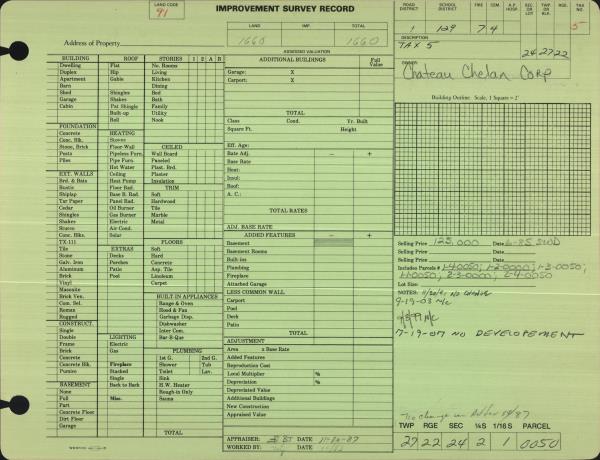 LAND CODE
91
IMPROVEMENT SURVEY RECORD
LAND IMP. TOTAL
1660 1660
Address of Property
ASSESSED VALUATION
ROAD DISTRICT SCHOOL DISTRICT FIRE CEM. A.P. HOSP. REC OR LOT TWP. OR BLK.
1 129 7 4 5
DESCRIPTION
TAX 5 242722
Chateau Chelan Corp
Building Outline: Scale, 1 Square = 2'
BUILDING
Dwelling
Duplex
Apartment
Barn
Shed
Garage
Cabin
FOUNDATION
Concrete
Conc. Blk.
Stone, Brick
Posts
Piles
EXT. WALLS
Brd. & Bats
Rustic
Shiplap
Tar Paper
Cedar
Shingles
Shakes
Stucco
Conc. Blks.
TX-111
Tile
Stone
Galv. Iron
Aluminum
Brick
Vinyl
Masonite
Brick Ven.
Com. Sel.
Roman
Rugged
CONSTRUCT.
Single
Double
Frame
Brick
Concrete
Concrete Blk.
Pumice
BASEMENT
None
Full
Part
Concrete Floor
Dirt Floor
Garage
ROOF
Flat
Hip
Gable
Shingles
Shakes
Pat Shingle
Built-up
Roll
HEATING
Stoves
Floor-Wall
Pipeless Furn.
Pipe Furn.
Hot Water
Ceiling
Heat Pump
Floor Rad.
Base B. Rad.
Panel Rad.
Oil Burner
Gas Burner
Electric
Air Cond.
Solar
EXTRAS
Decks
Porches
Patio
Pool
Carpets
LIGHTING
Electric
Gas
Fireplace
Stacked
Single
Back to Back
Misc.
STORIES 1 2 A B
No. Rooms
Living
Kitchen
Dining
Bed
Bath
Family
Utility
Nook
CEILED
Wall Board
Paneled
Plast. Brd.
Plaster
Insulation
TRIM
Soft
Hardwood
Tile
Marble
Metal
FLOORS
Soft
Hard
Concrete
Asp. Tile
Linoleum
Carpet
BUILT-IN APPLIANCES
Range & Oven
Hood & Fan
Garbage Disp.
Dishwasher
Inter Com.
Bar-B-Que
PLUMBING
1st G. 2nd G.
Shower Tub
Toilet Lav.
Sink
H.W. Heater
Rough-in Only
Sauna
TOTAL
ADDITIONAL BUILDINGS Full Value
Garage: X
Carport: X
TOTAL
Class Cond. Yr. Built
Square Ft. Height
Eff. Age:
Rate Adj. - +
Base Rate
Heat:
Insul:
Roof:
A. C.:
TOTAL RATES
ADJ. BASE RATE
ADDED FEATURES - +
Basement
Basement Rooms
Built-ins
Plumbing
Fireplace
Attached Garage
LESS COMMON WALL
Carport
Pool
Deck
Patio
TOTAL
ADJUSTMENT
Area x Base Rate
Added Features
Reproduction Cost
Local Multiplier %
Depreciation %
Depreciated Value
Additional Buildings
New Construction
Appraised Value
APPRAISER: DATE 11-20-87
WORKED BY: DATE
Selling Price 125,000 Date 6-85 SWD
Selling Price Date
Includes Parcels # 1-4-0050; 1-2-0000; 1-3-0050;
1-1-0050; 2-3-0000; 2-4-0050
Lot Size:
NOTES: No Change
9-19-03 N/C
7-19-07 NO DEVELOPEMENT
No change
TWP RGE SEC ¼S 1/16S PARCEL
27 22 24 2 1 0050